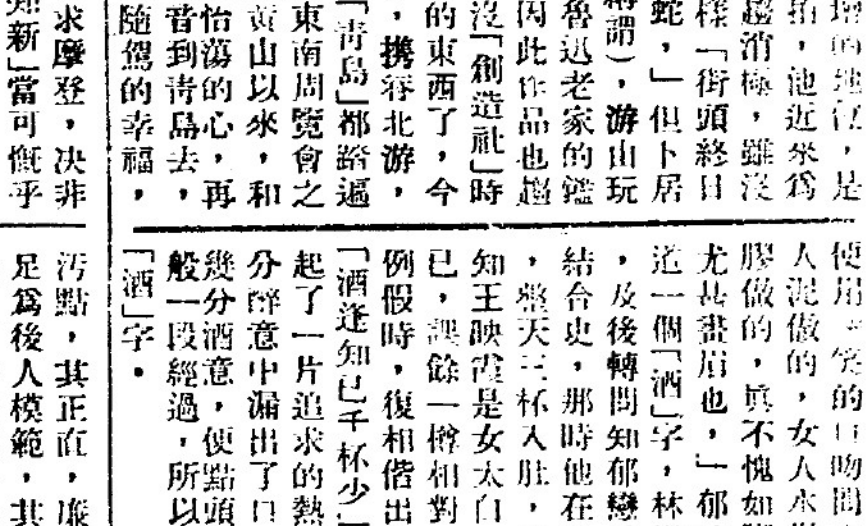 ,是
拍,他近來爲
趨消極,雖沒
樣「街頭終日
蛇,」但卜居
謂),游山玩
魯迅老家的鑑
因此作品也趨
沒「創造社」時
的東西了,今
,攜眷北游,
「青島」都踏遍
東南周覽會之
黃山以來,和
怡蕩的心,再
昔到青島去,
隨駕的幸福,
使用笑的口吻間
人泥做的,女人水
膠做的,眞不愧如
尤甚畫眉也,」郁
道一個「酒」字,林
,及後轉問知郁戀
結合史,那時他在
,整天三杯入肚,
知王映霞是女太白
已,課餘一樽相對
例假時,復相偕出
「酒逢知已千杯少」
起了一片追求的熱
分醉意中漏出了口
幾分酒意,便點頭
般一段經過,所以
「酒」字。
求摩登,决非
知新」當可慨乎
汚點,其正直,廉
足爲後人模範,其